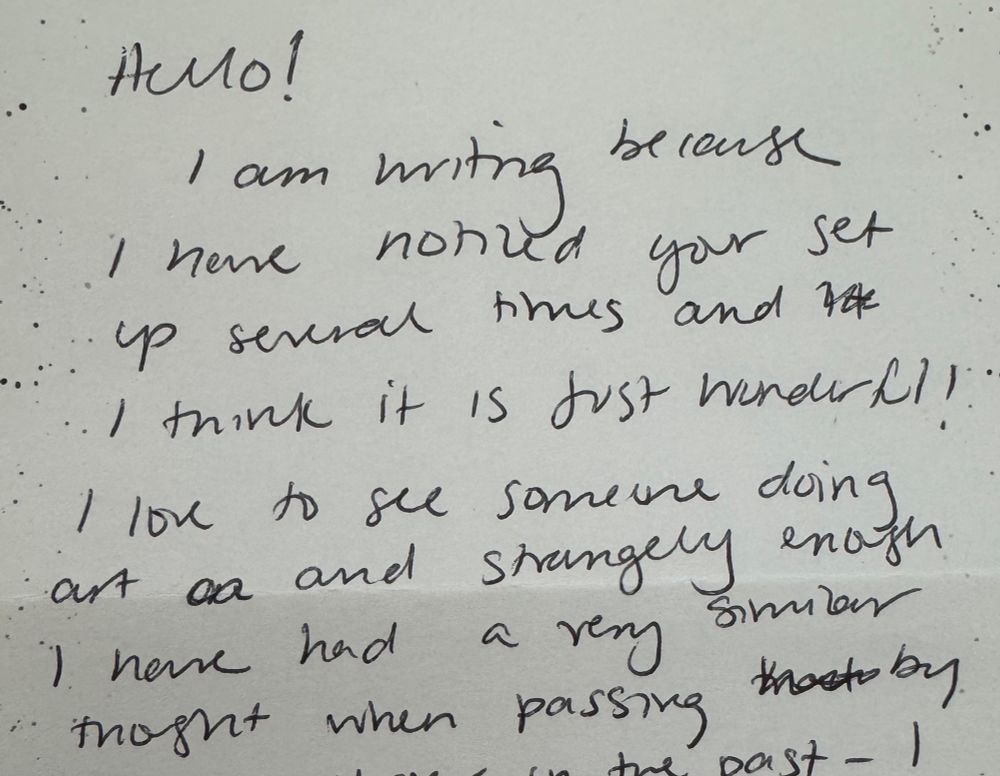 Hello!
I am writing because
I have noticed your set
up several times and
I think it is just wonderful!
I love to see someone doing
art and strangely enough
I have had a very similar
thought when passing by
in the past - I